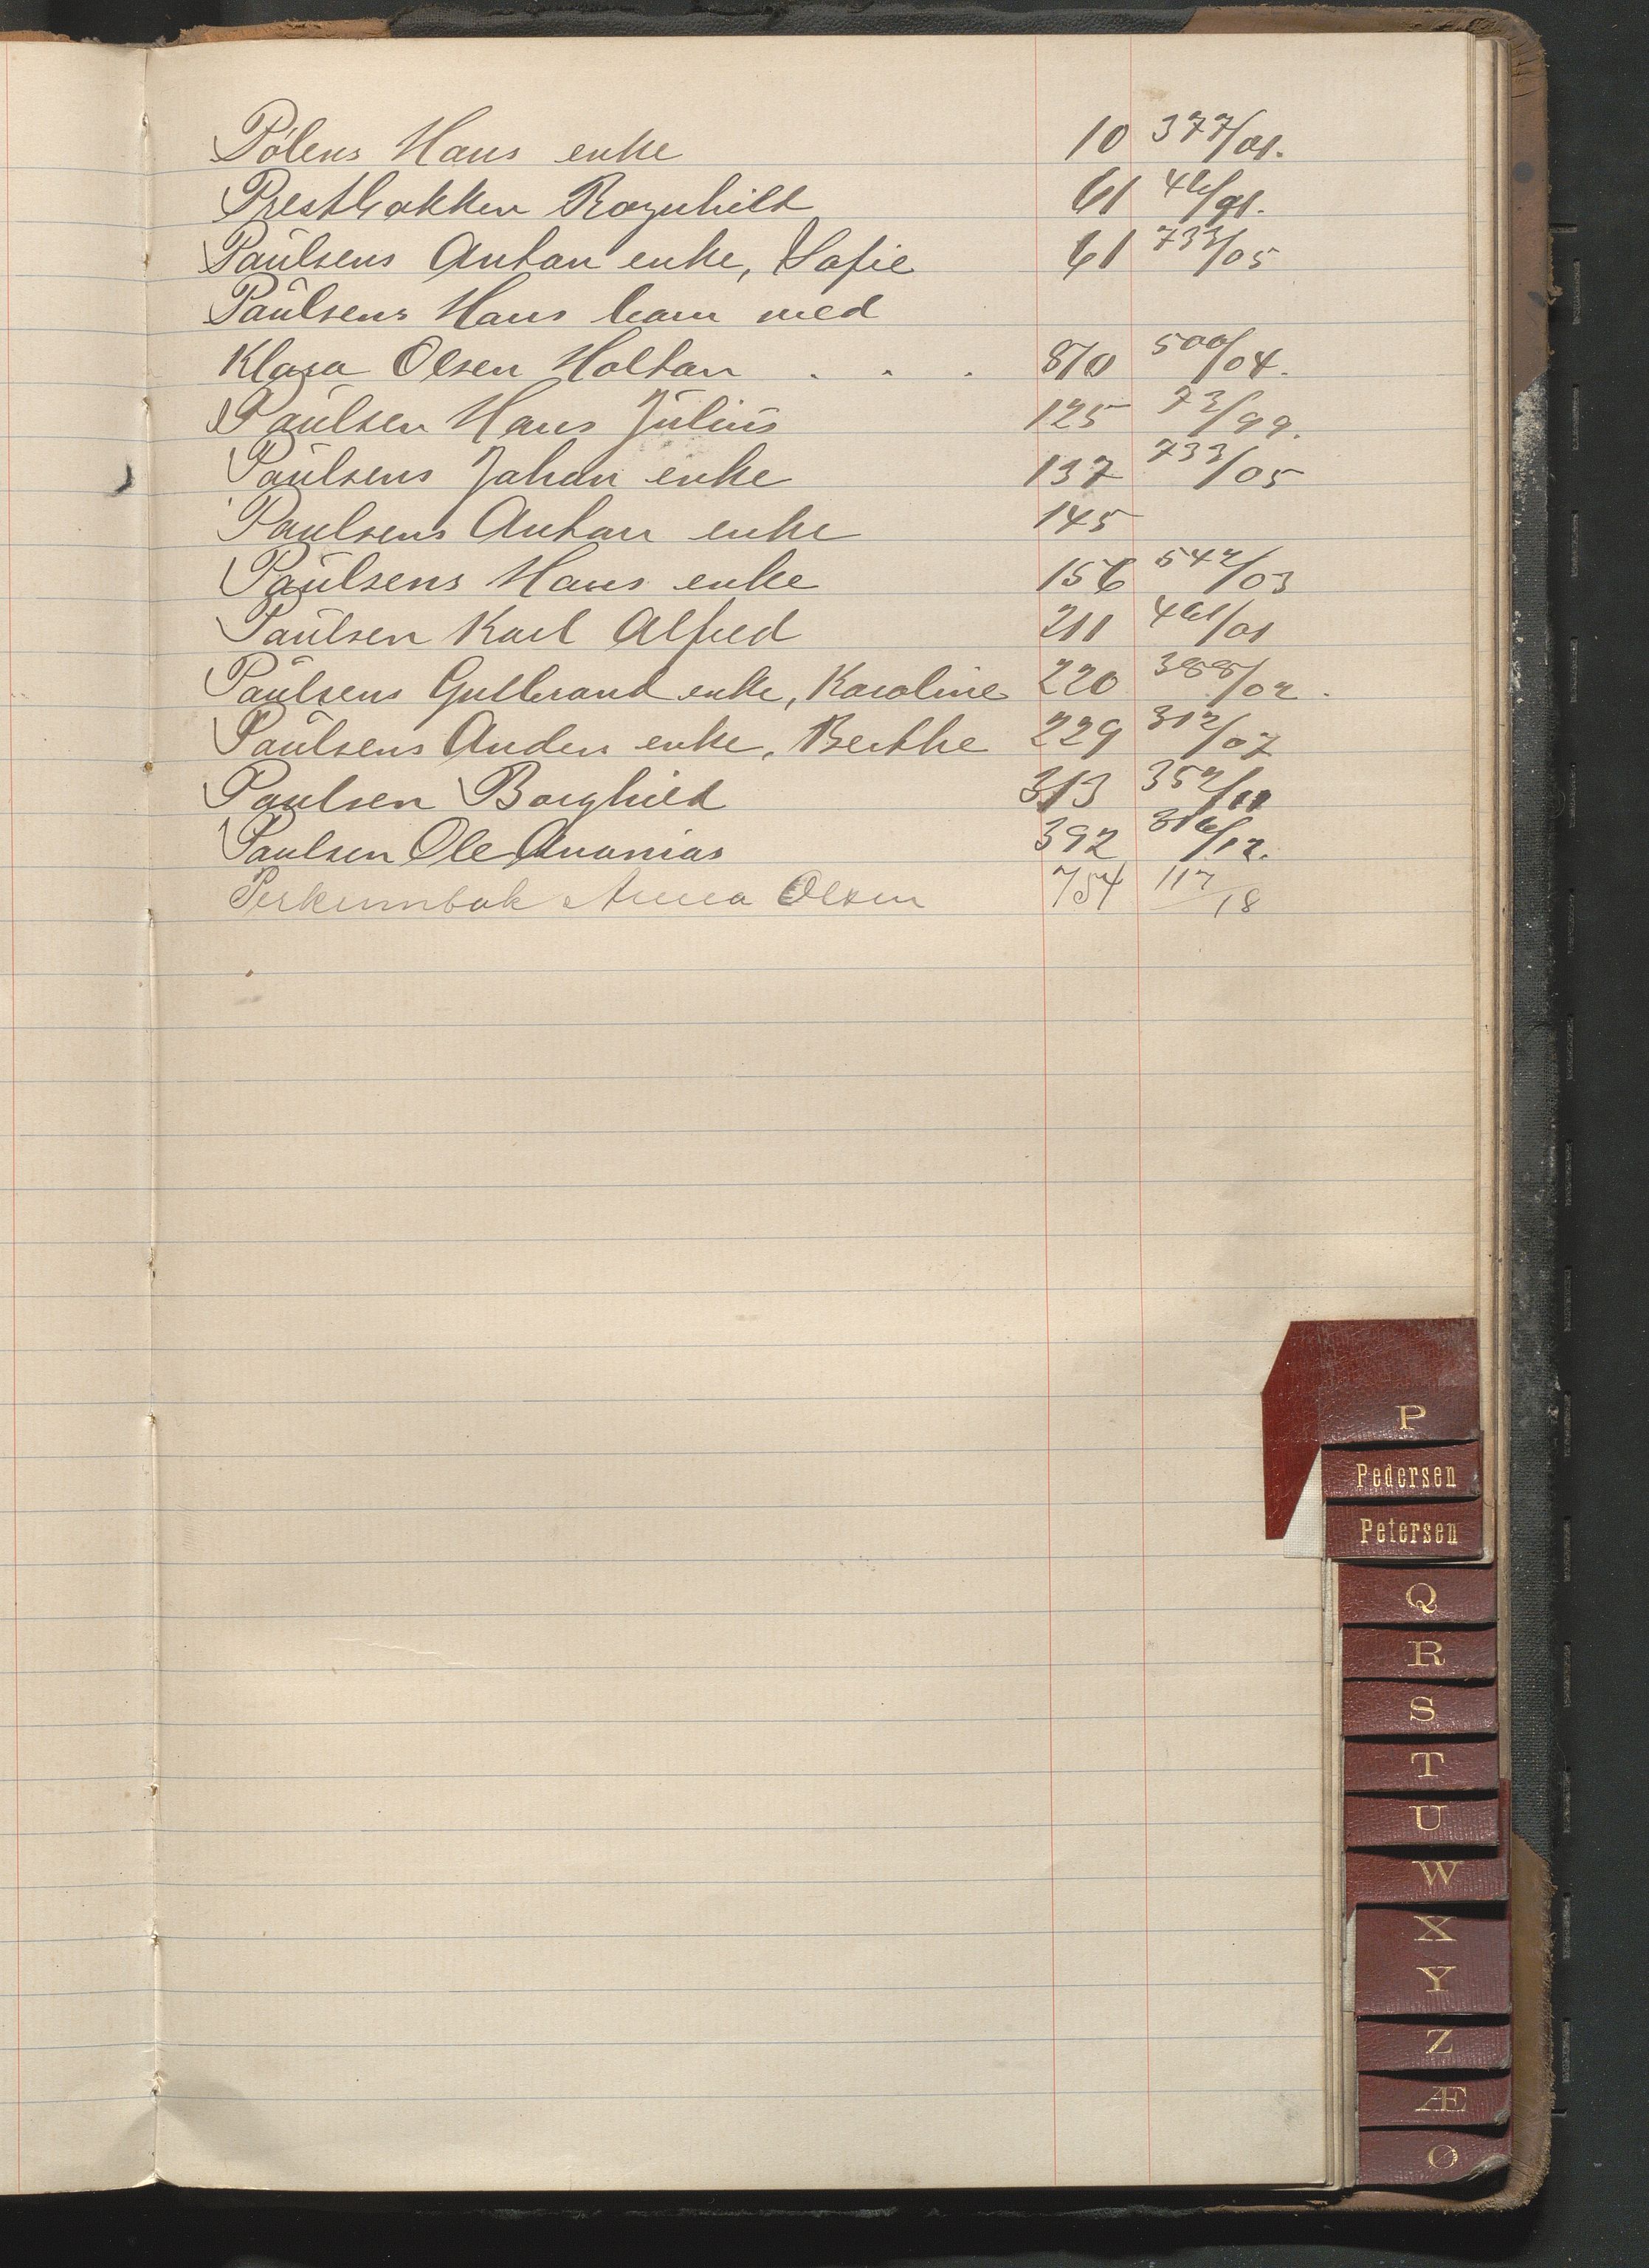 Pólens Hans enke 10 377/01.
Prestbakken Ragnhild 61 46/91.
Paulsens Anton enke, Sofie 61 733/05
Paulsens Hans barn med
Klara Olsen Holtan . . . 810 500/04.
Paulsen Hans Julius 125 73/99.
Paulsens Johan enke 137 733/05
Paulsens Anton enke 145
Paulsens Hans enke 156 542/03
Paulsen Karl Alfred 211 461/01
Paulsens Gulbrand enke, Karoline 220 388/02.
Paulsens Anders enke, Berthe 229 312/07
Paulsen Borghild 313 352/11
Paulsen Ole Ananias 392 316/12.
Perkumbak Anna Olsen 754 117/18
P
Pedersen
Petersen
Q
R
S
T
U
W
X
Y
Z
Æ
Ø